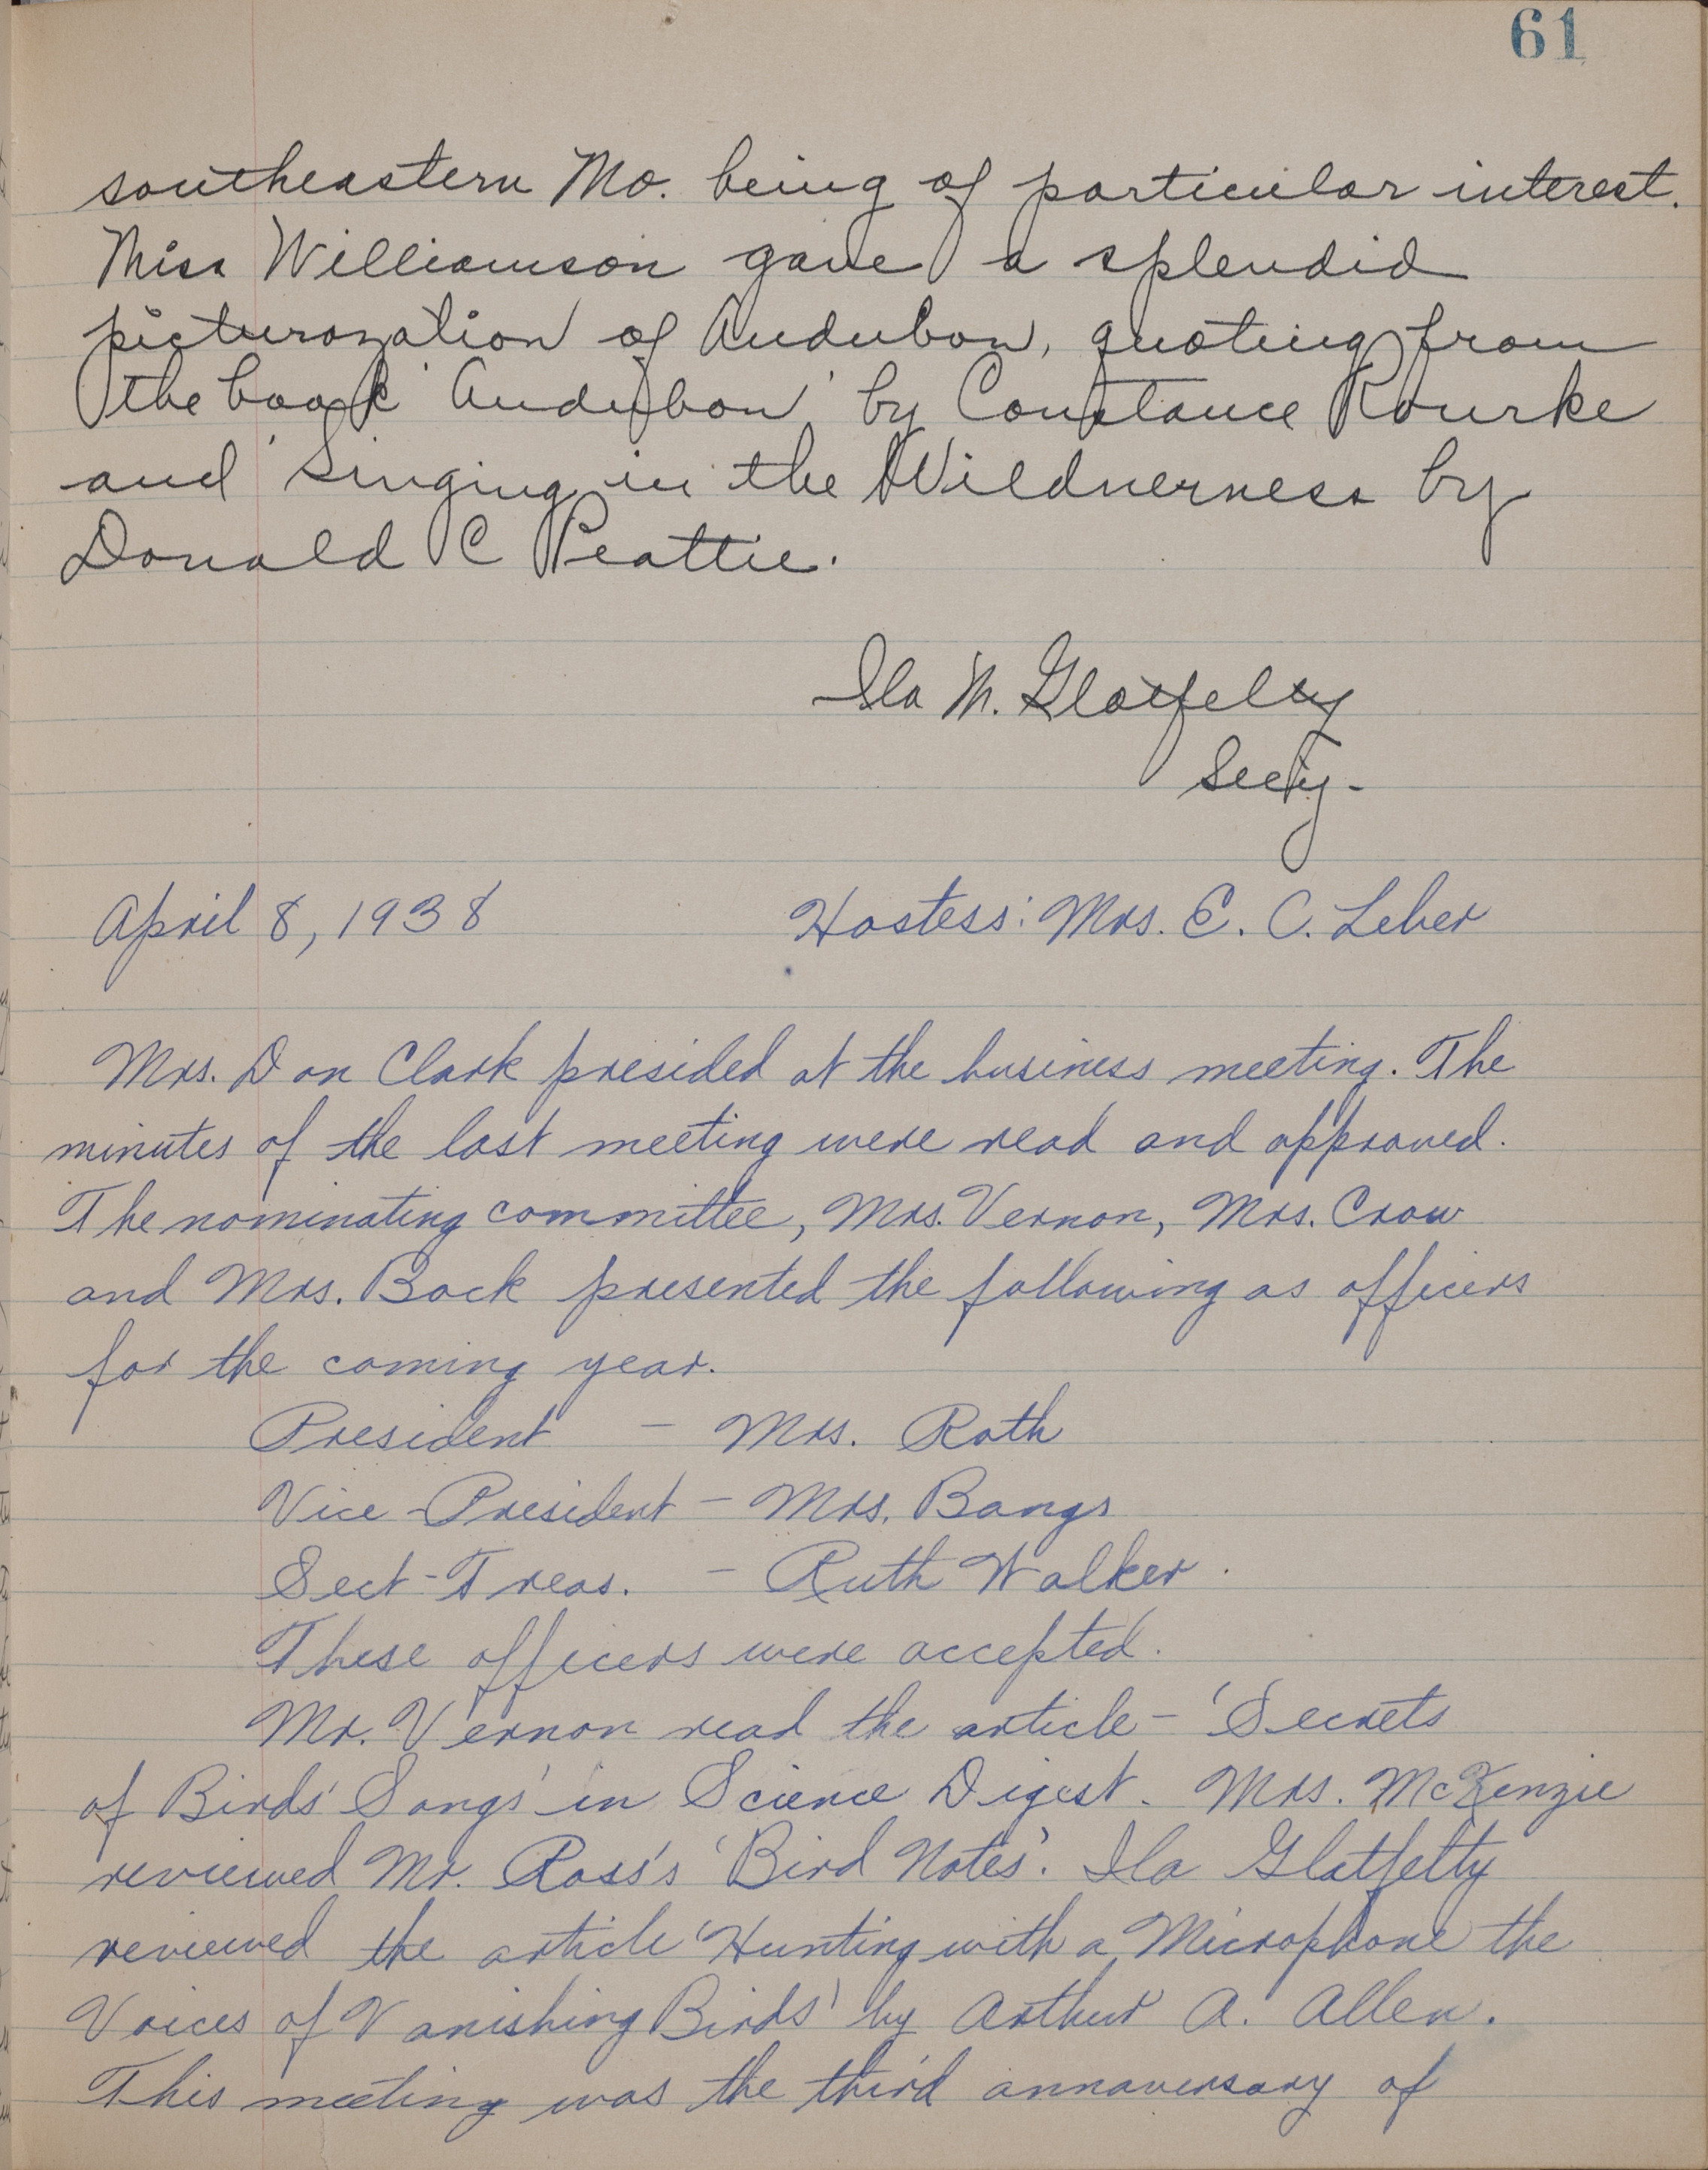 61
southeastern Mo. being of particular interest.
Miss Williamson gave a splendid
picturozation of Audubon, quoting from
the book 'Audubon' by Constance Rourke
and 'Singing in the Wildnerness by
Donald C Peattie.
Ila M. Glatfelty
Sect'y-
April 8, 1938 Hostess: Mrs. E. C. Leber
Mrs. Don Clark presided at the business meeting. The
minutes of the last meeting were read and approved.
The nominating committee, Mrs. Vernon, Mrs. Crow
and Mrs. Bock presented the following as officers
for the coming year.
President - Mrs. Roth
Vice-President - Mrs. Bangs
Sect-Treas. - Ruth Walker.
These officers were accepted.
Mr. Vernon read the article - 'Secrets
of Birds' Songs' in Science Digest. Mrs. McKenzie
reviewed Mr. Ross's 'Bird Notes'. Ila Glatfelty
reviewed the article 'Hunting with a Microphone the
Voices of Vanishing Birds' by Arthur A. Allen.
This meeting was the third annaversary of